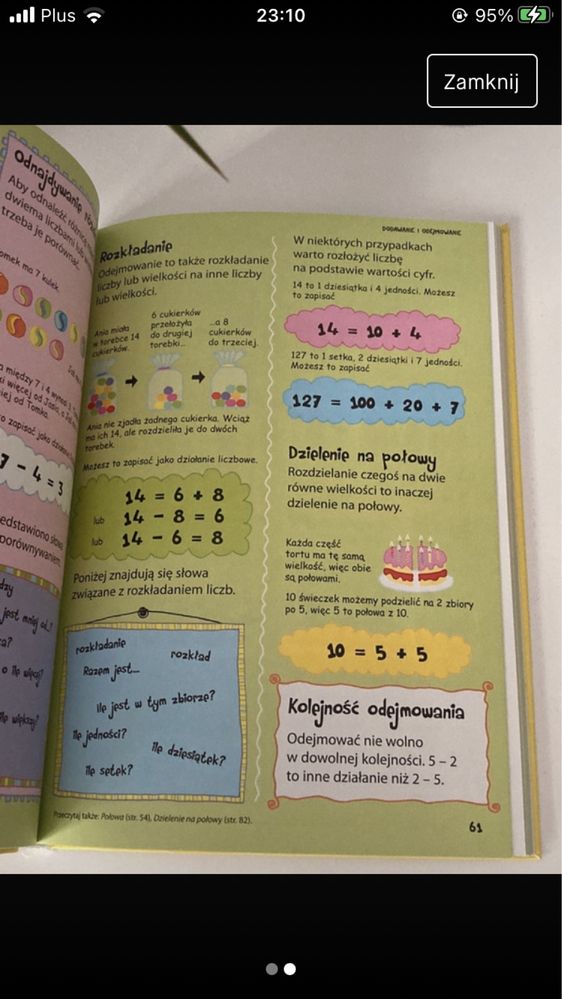 Plus
23:10
95%
Zamknij
Odnajdywanie
Aby odnaleźć różnicę
dwiema liczbami lub
trzeba je porównać.
omek ma 7 kulek.
między 7 i 4 wynosi
od Tomka.
zapisać jako
7 - 4 = 3
edstawiono słowa
porównywaniem.
jest mniej od...?
o ile więcej?
ile większy?
Rozkładanie
Odejmowanie to także rozkładanie
liczby lub wielkości na inne liczby
lub wielkości.
Ania miała
w torebce 14
cukierków.
6 cukierków
przełożyła
do drugiej
torebki...
...a 8
cukierków
do trzeciej.
Ania nie zjadła żadnego cukierka. Wciąż
ma ich 14, ale rozdzieliła je do dwóch
torebek.
Możesz to zapisać jako działanie liczbowe.
14 = 6 + 8
lub 14 - 8 = 6
lub 14 - 6 = 8
Poniżej znajdują się słowa
związane z rozkładaniem liczb.
rozkładanie
rozkład
Razem jest...
Ile jest w tym zbiorze?
Ile jedności?
Ile dziesiątek?
Ile setek?
Przeczytaj także: Połowa (str. 54), Dzielenie na połowy (str. 82).
DODAWANIE I ODEJMOWANIE
W niektórych przypadkach
warto rozłożyć liczbę
na podstawie wartości cyfr.
14 to 1 dziesiątka i 4 jedności. Możesz
to zapisać
14 = 10 + 4
127 to 1 setka, 2 dziesiątki i 7 jedności.
Możesz to zapisać
127 = 100 + 20 + 7
Dzielenie na połowy
Rozdzielanie czegoś na dwie
równe wielkości to inaczej
dzielenie na połowy.
Każda część
tortu ma tę samą
wielkość, więc obie
są połowami.
10 świeczek możemy podzielić na 2 zbiory
po 5, więc 5 to połowa z 10.
10 = 5 + 5
Kolejność odejmowania
Odejmować nie wolno
w dowolnej kolejności. 5 – 2
to inne działanie niż 2 – 5.
61